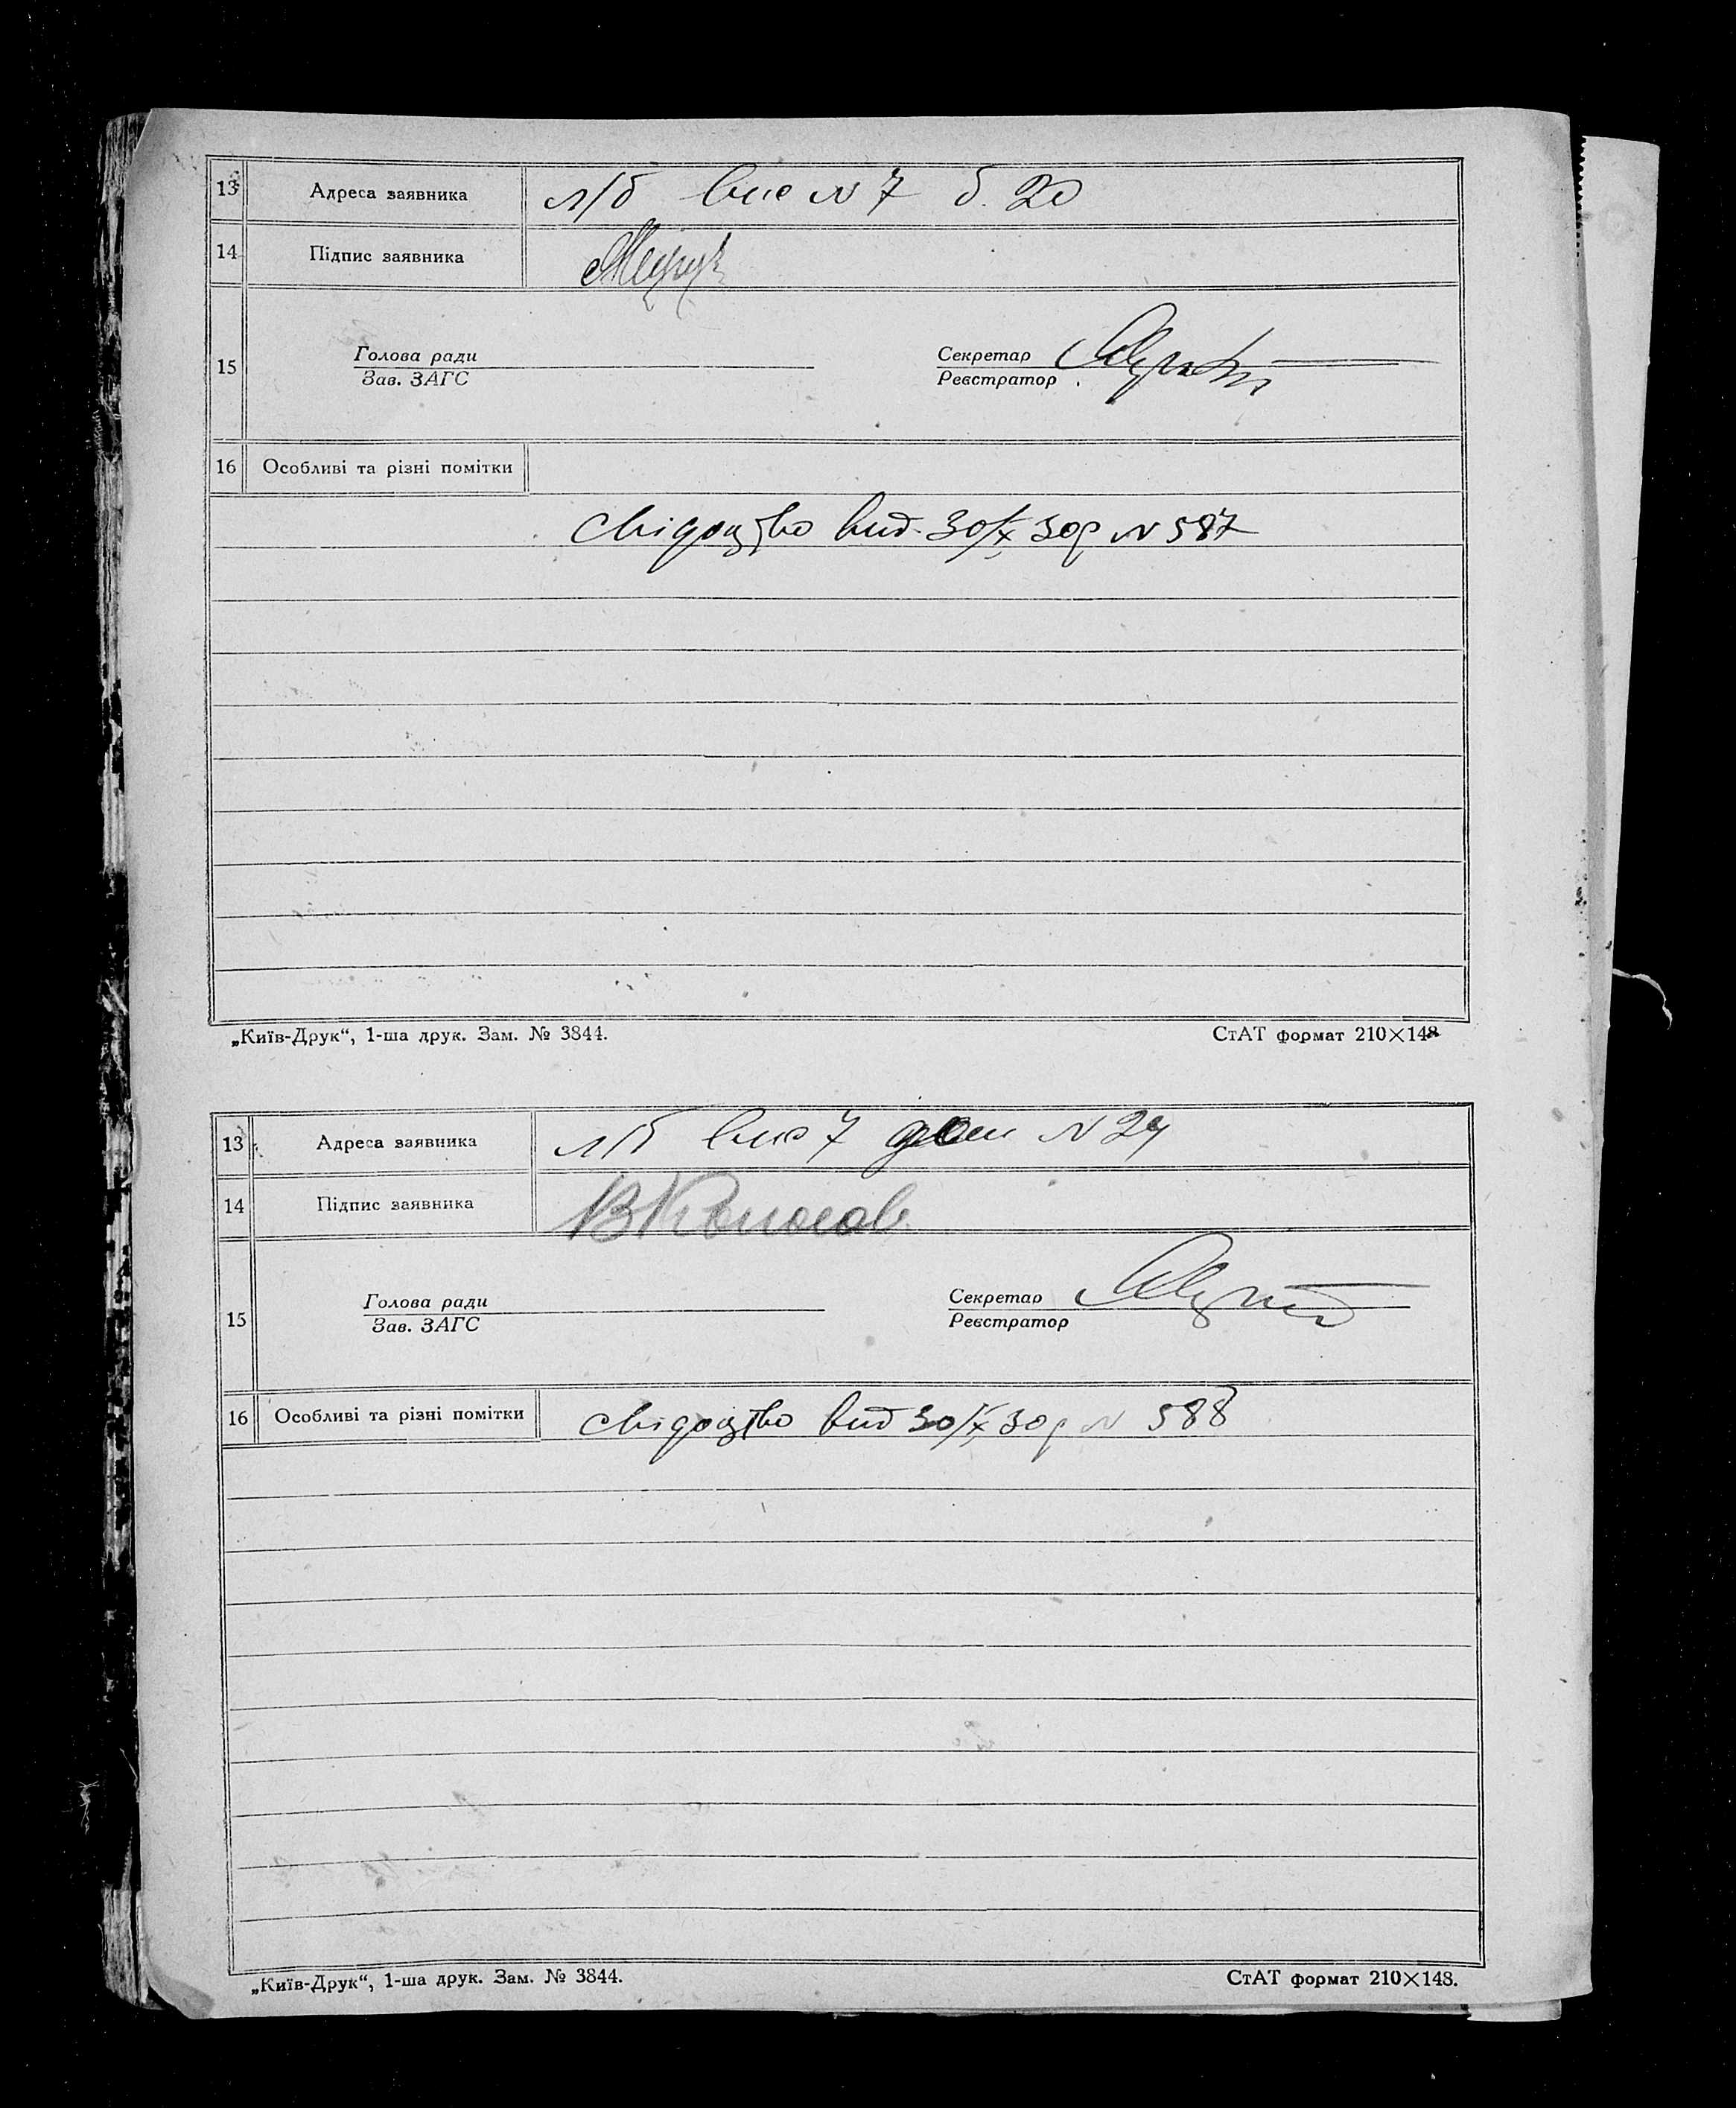 13 Адреса заявника л/б вис N 7 б. 20
14 Підпис заявника
15 Голова ради Секретар
Зав. ЗАГС Реєстратор
16 Особливі та різні помітки
Свідоцтво вид. 30/X 30р N 587
„Київ-Друк“, 1-ша друк. Зам. № 3844. СтАТ формат 210×148
13 Адреса заявника л/б вис 7 дом N 24
14 Підпис заявника
15 Голова ради Секретар
Зав. ЗАГС Реєстратор
16 Особливі та різні помітки Свідоцтво вид 30/X 30р N 588
„Київ-Друк“, 1-ша друк. Зам. № 3844. СтАТ формат 210×148.